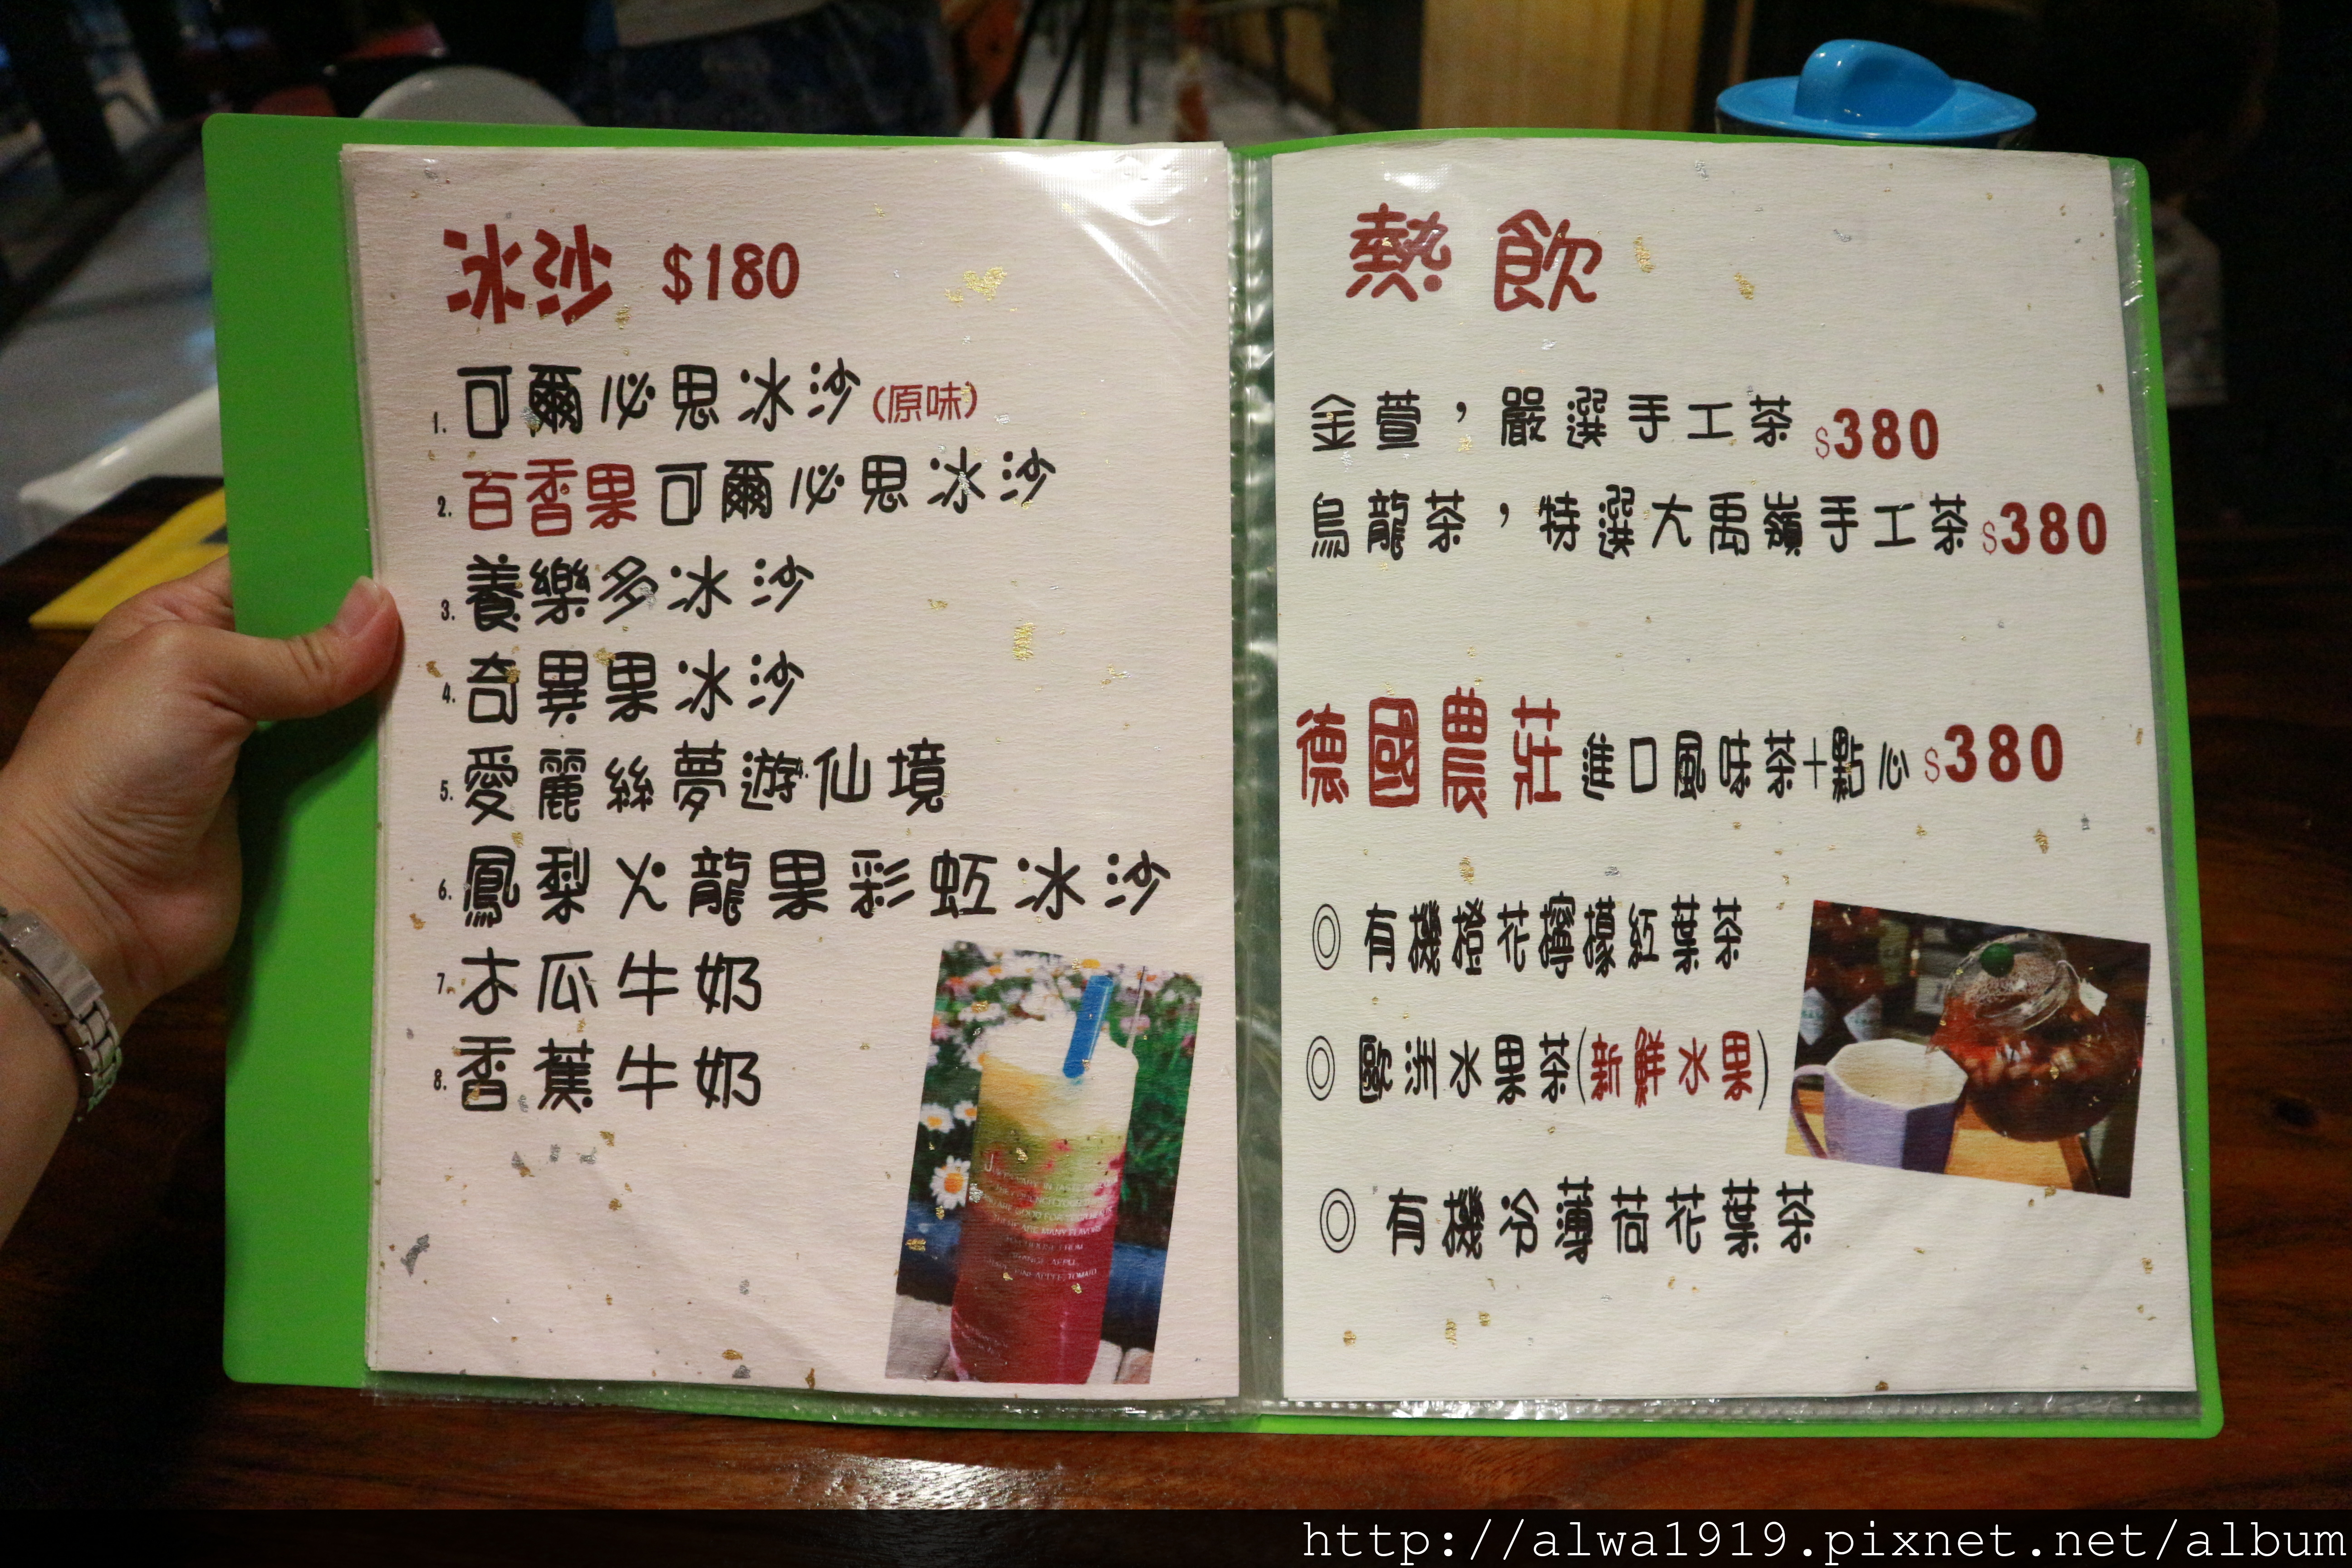 冰沙 $180
1. 可爾必思冰沙(原味)
2. 百香果可爾必思冰沙
3. 養樂多冰沙
4. 奇異果冰沙
5. 愛麗絲夢遊仙境
6. 鳳梨火龍果彩虹冰沙
7. 木瓜牛奶
8. 香蕉牛奶
熱飲
金萱,嚴選手工茶 $380
烏龍茶,特選大禹嶺手工茶 $380
德國農莊 進口風味茶+點心 $380
◎ 有機橙花檸檬紅葉茶
◎ 歐洲水果茶(新鮮水果)
◎ 有機冷薄荷花葉茶
http://alwa1919.pixnet.net/album